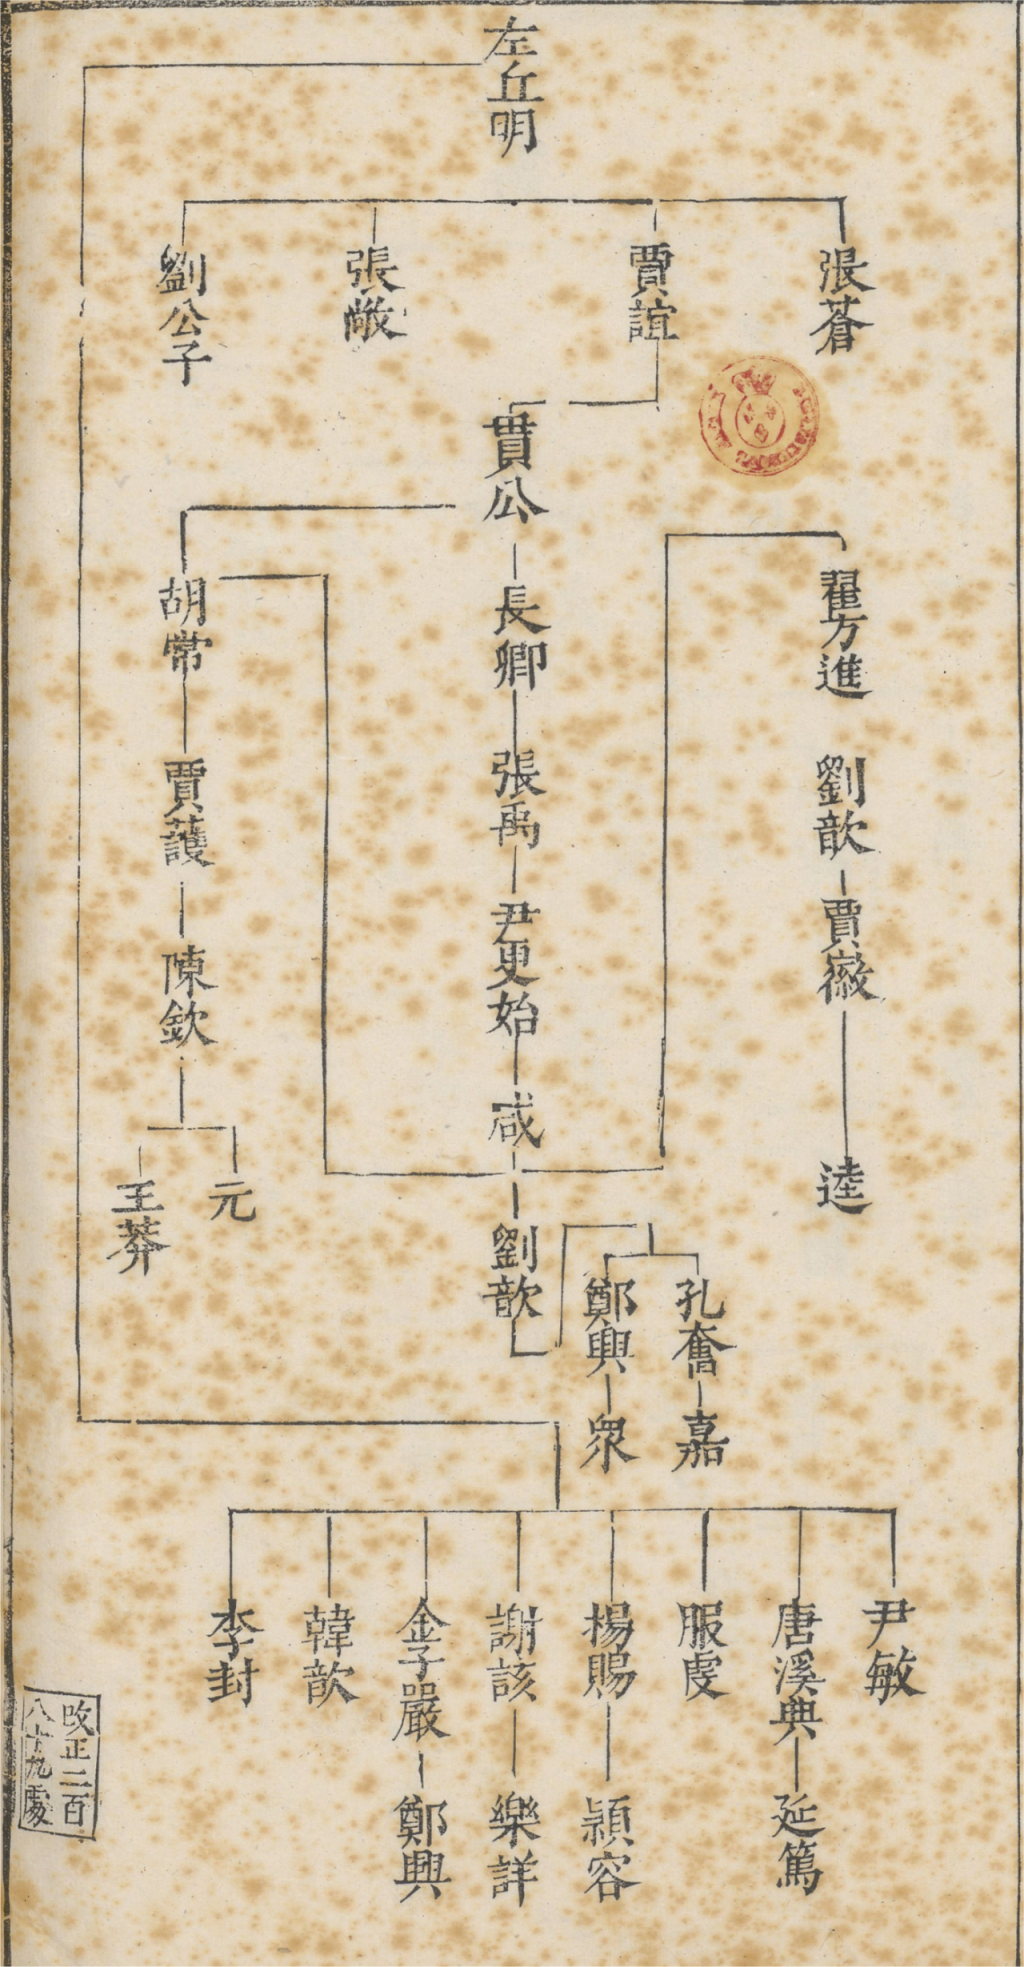 左丘明
張蒼
賈誼
張敞
劉公子
貫公
長卿
張禹
尹更始
咸
劉歆
胡常
賈護
陳欽
元
王莽
翟方進
劉歆
賈徽
逵
孔奮
嘉
鄭興
衆
尹敏
唐溪典
延篤
服虔
楊賜
潁容
謝該
樂詳
金子嚴
鄭興
韓歆
李封
改正二百
八十九處